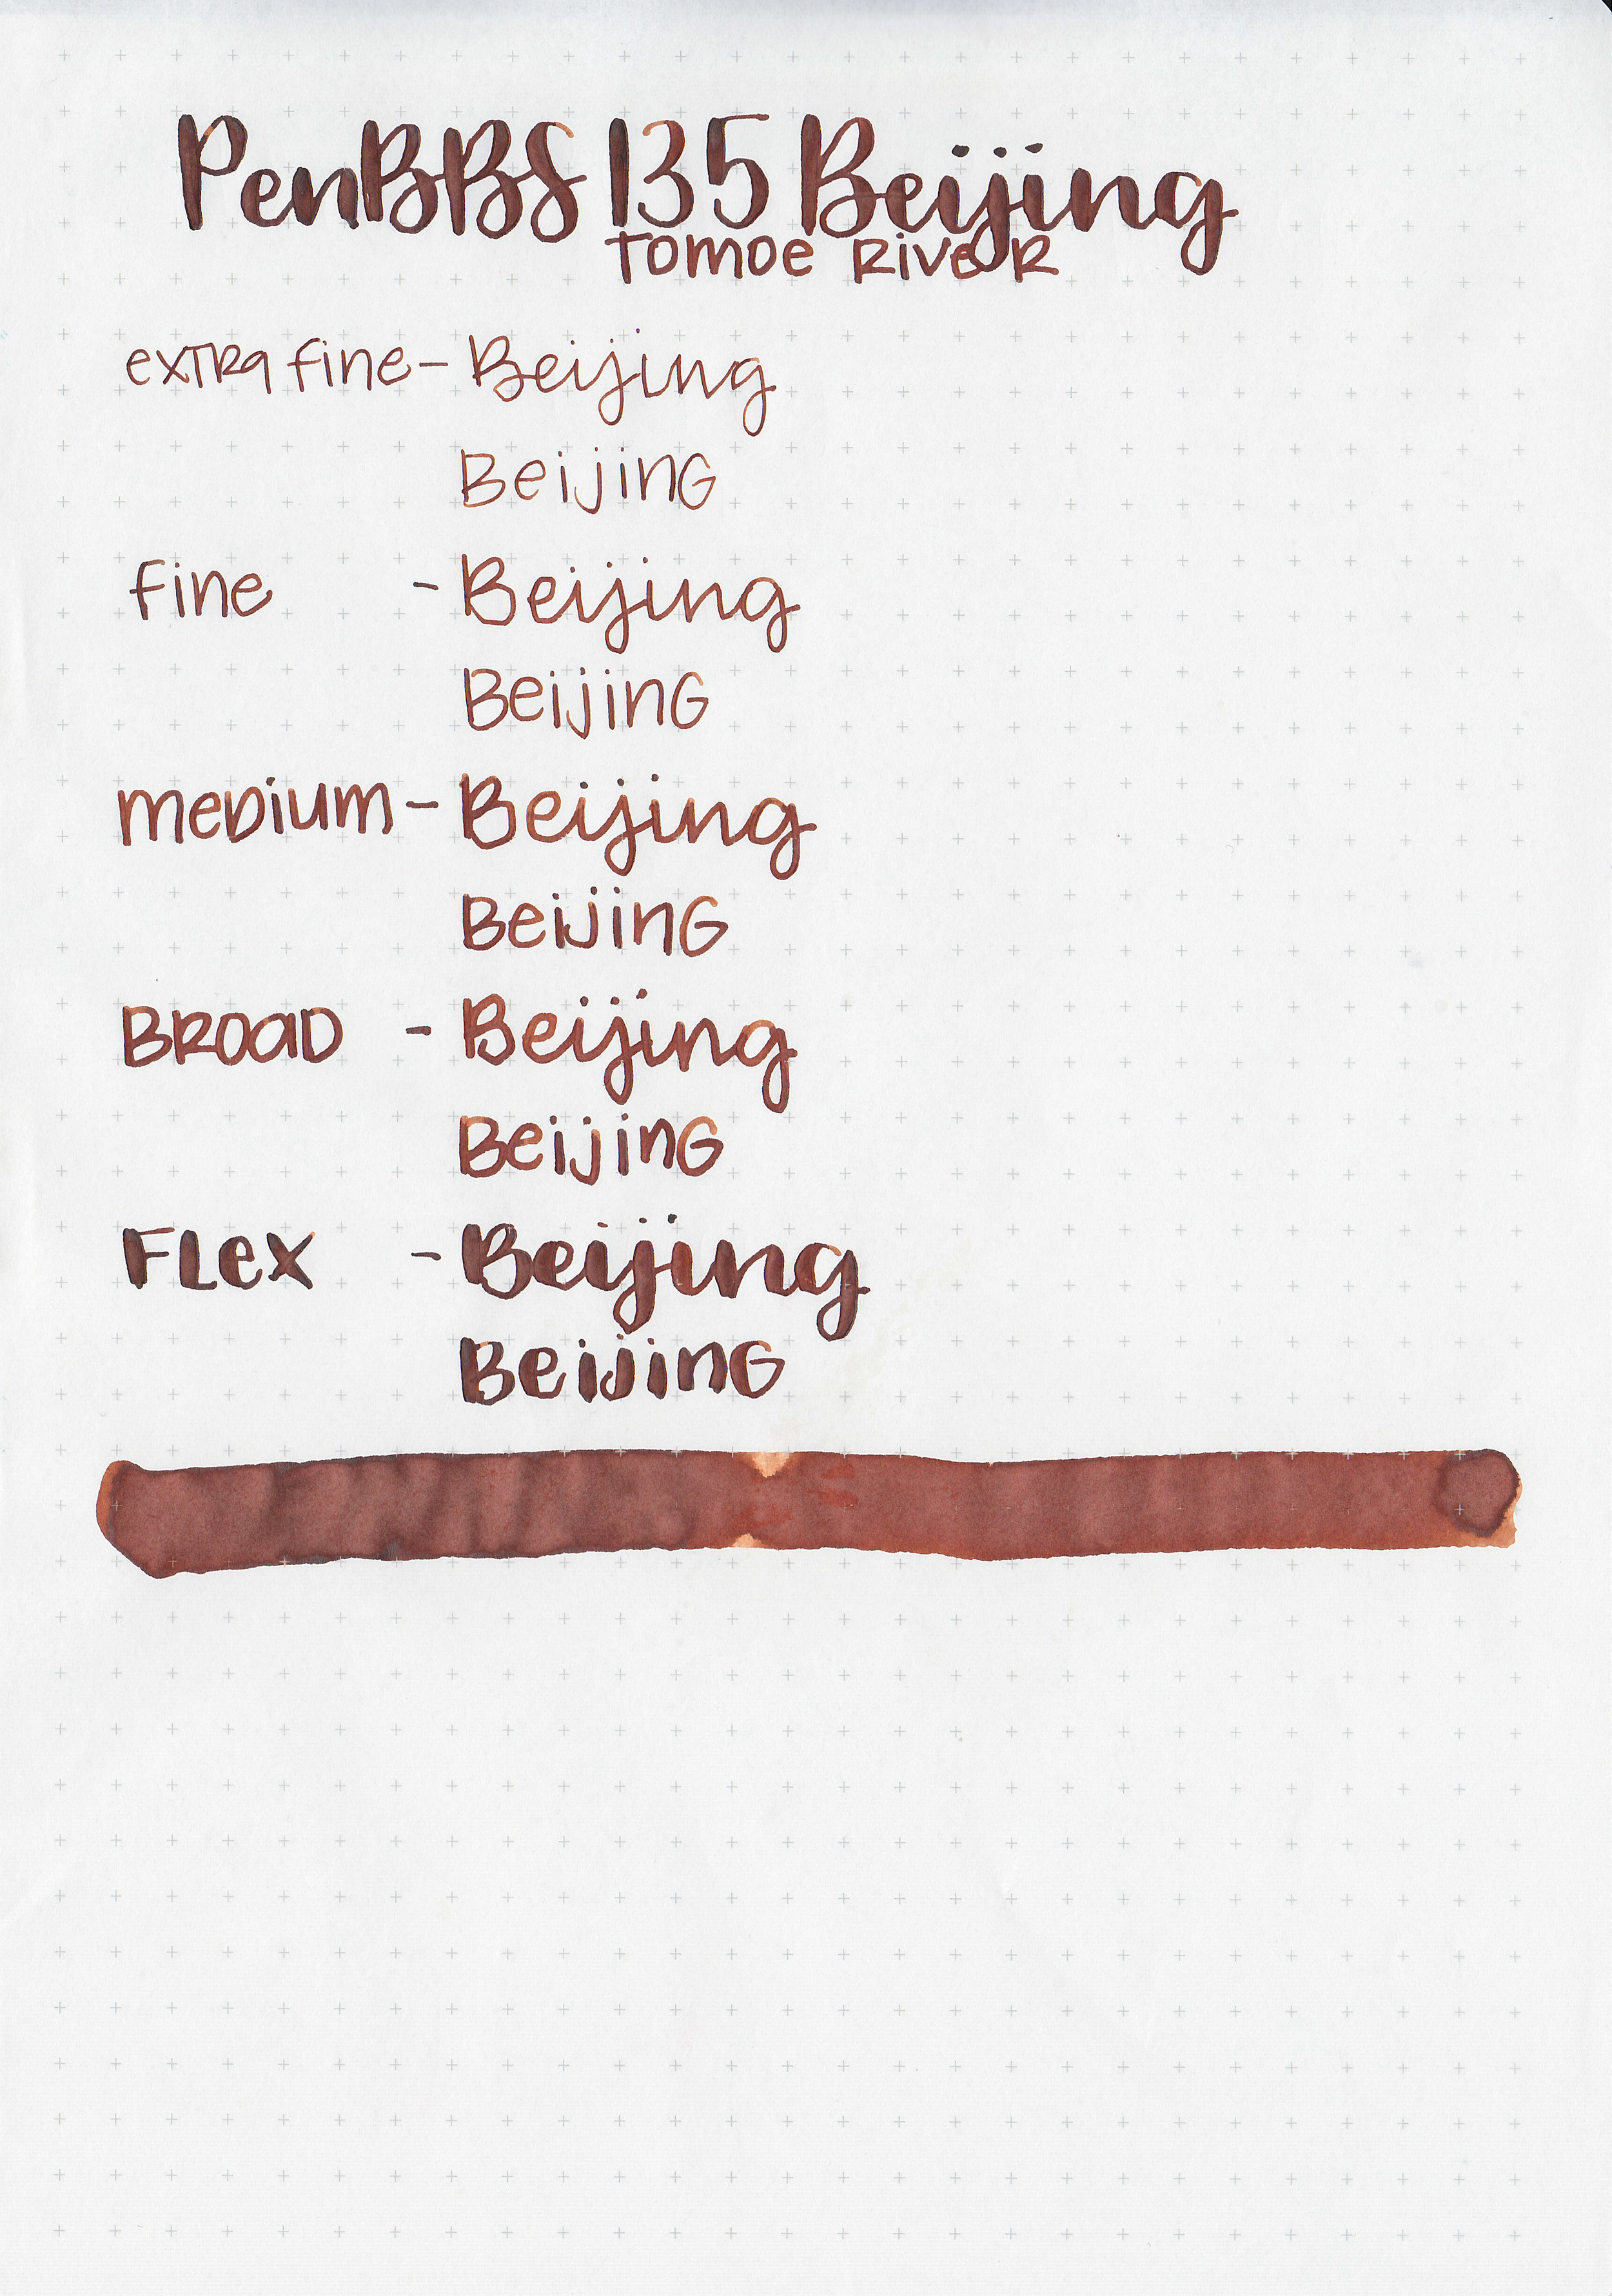 PenBBS 135 Beijing
Tomoe River
extra fine - Beijing
Beijing
fine - Beijing
Beijing
medium - Beijing
Beijing
Broad - Beijing
Beijing
Flex - Beijing
Beijing